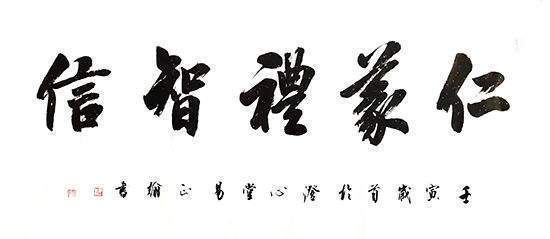 仁義禮智信
壬寅歲首於澄心堂易正翰書